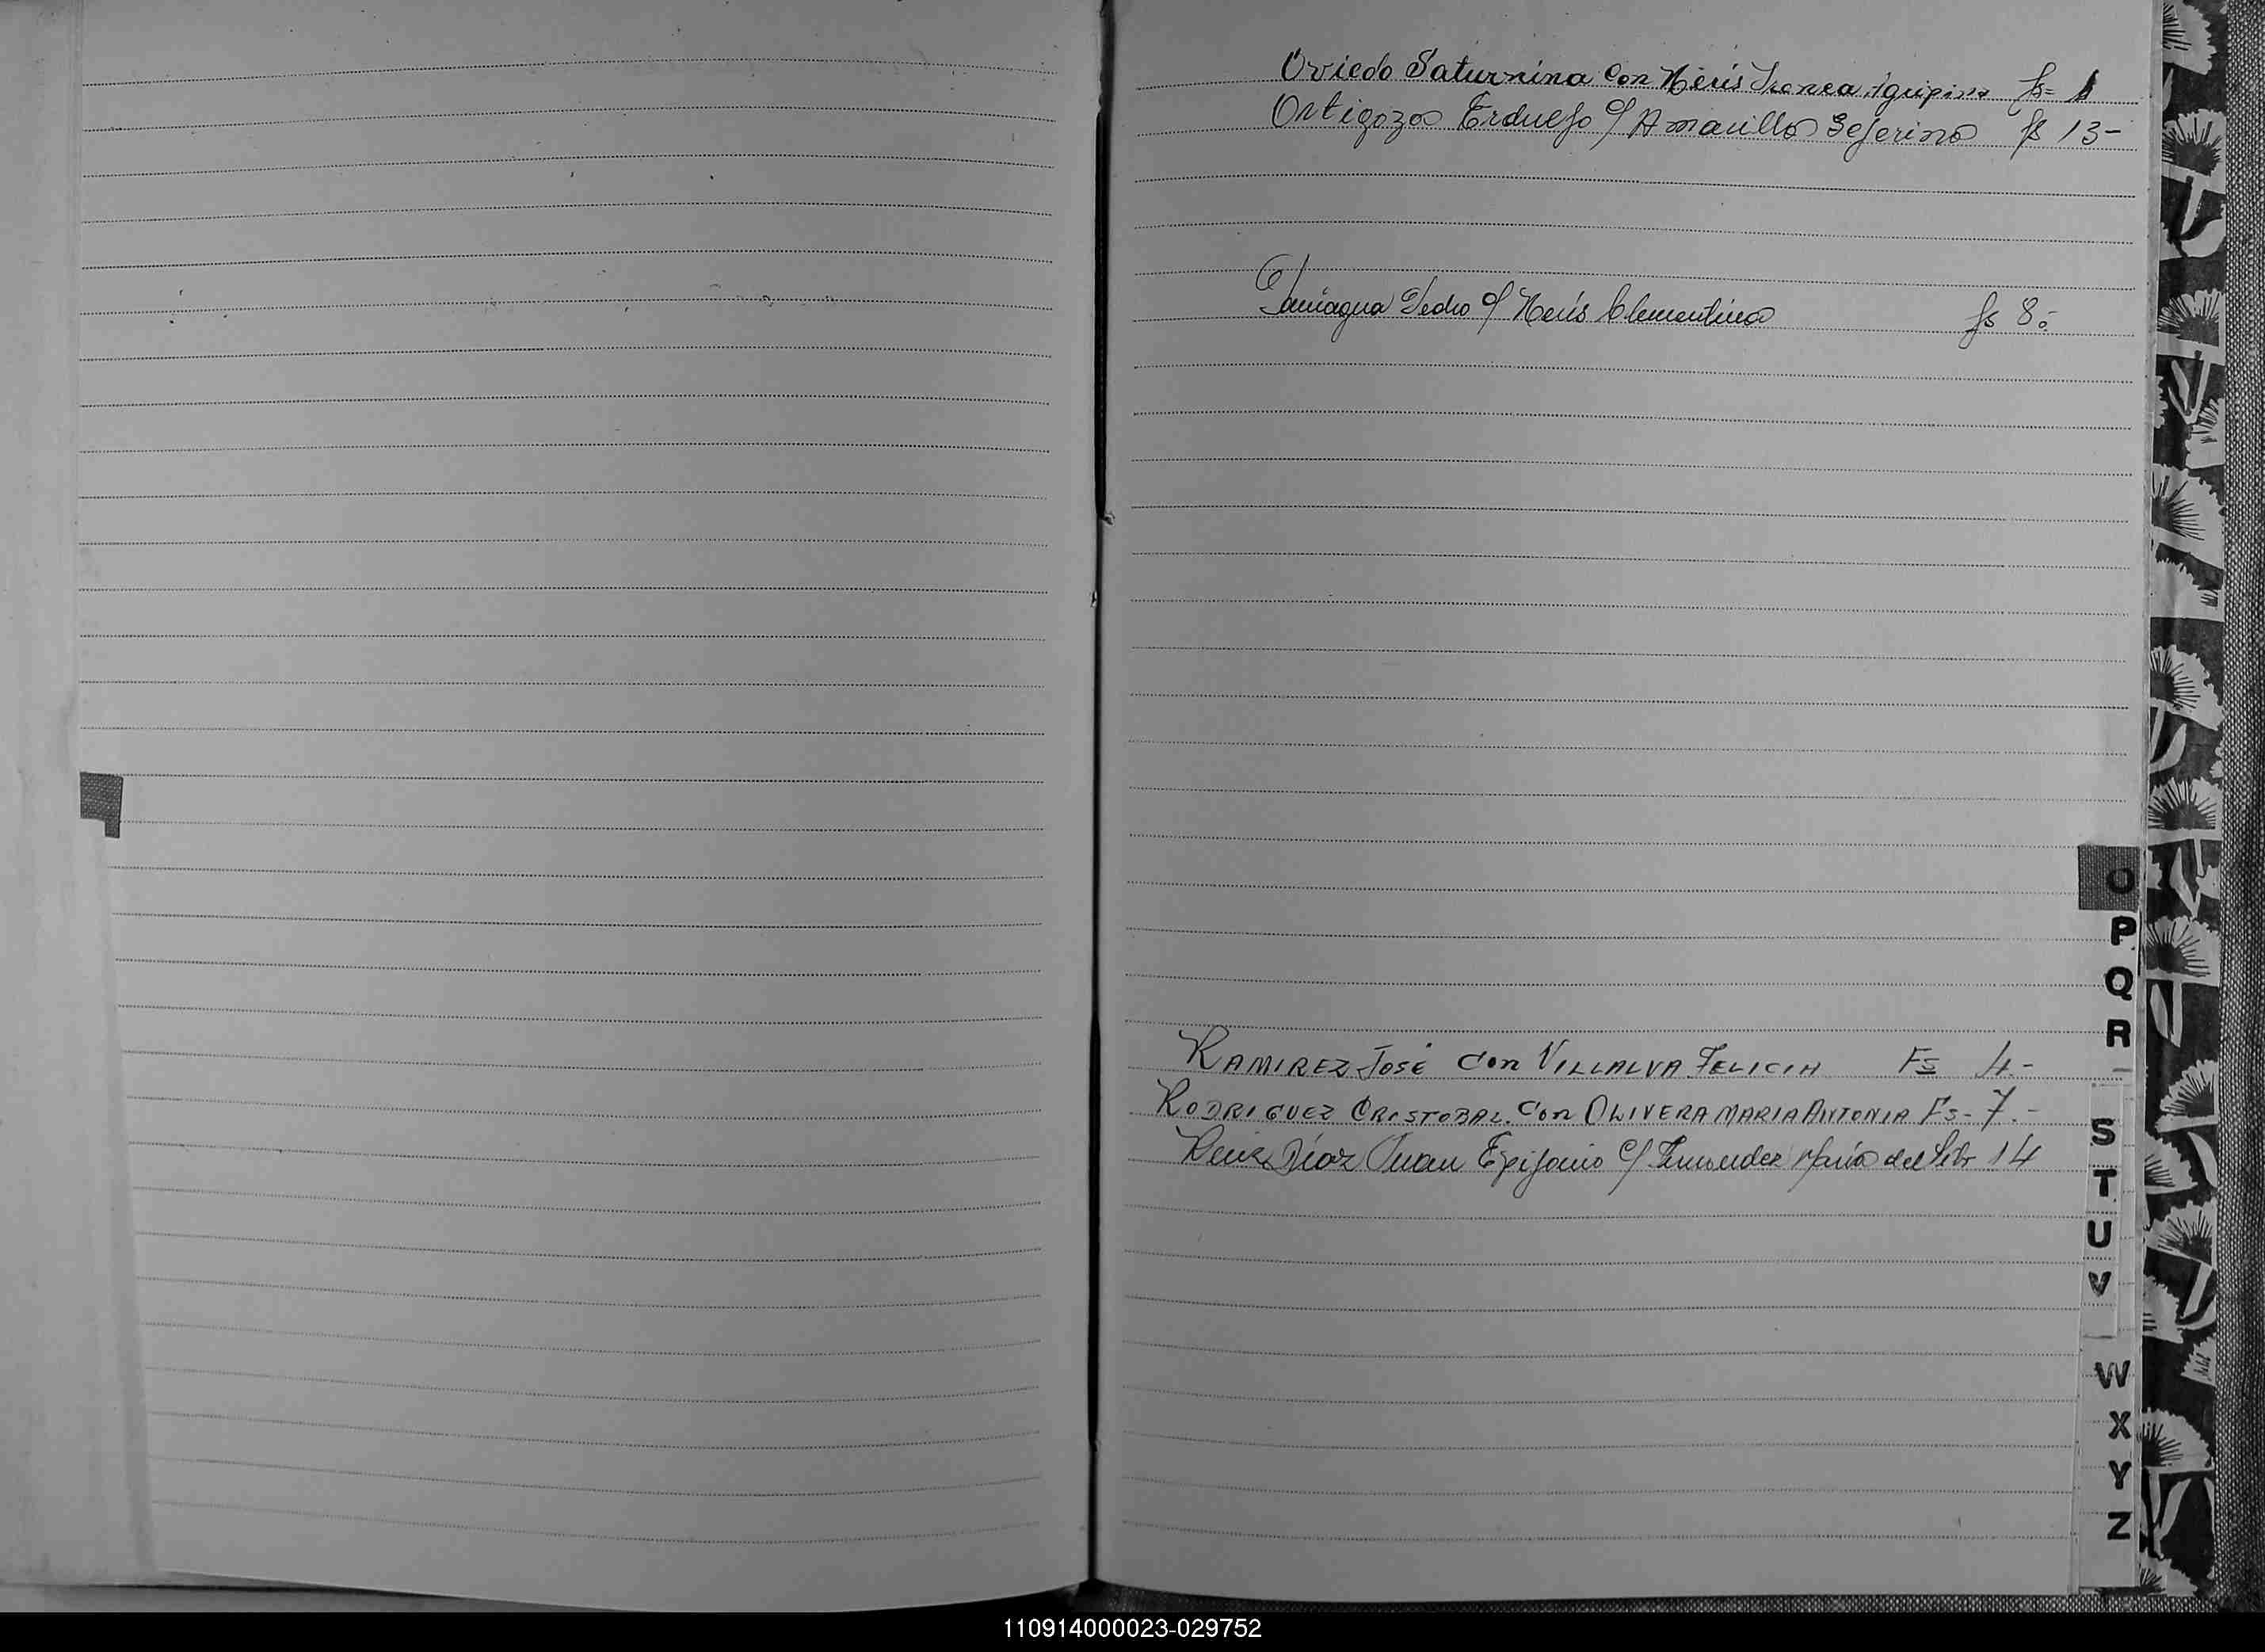 Oviedo Saturnina Con Neris Agripina fs= 1
Ortigoza Erdulfo c/ Amarilla Seferino fs 13-
Paniagua Pedro c/ Neris Clementina fs 8.-
RAMIREZ JOSÉ Con VILLALVA FELICIA FS 4.-
RODRIGUEZ CRISTOBAL. Con OLIVERA MARIA ANTONIA FS- 7.-
Ruiz Díaz Juan Epifanio c/ María del 14
O
P
Q
R
S
T
U
V
W
X
Y
Z
110914000023-029752